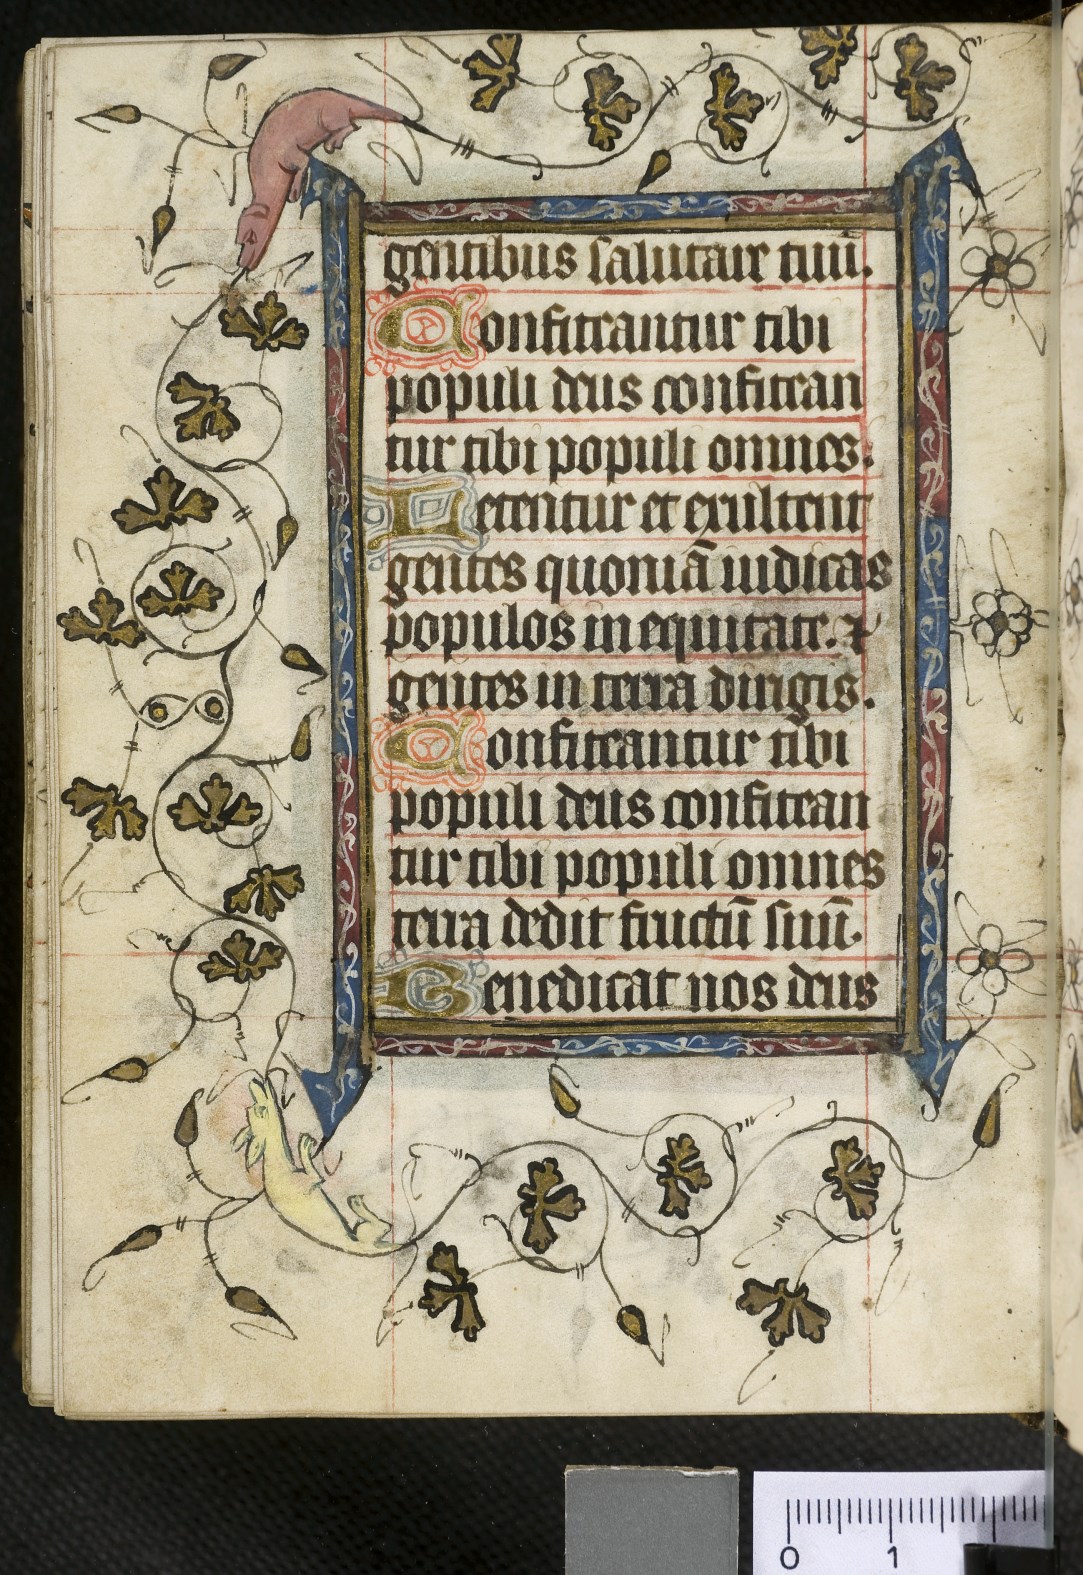 gentibus salutare tuū.
Confiteantur tibi
populi deus confitean
tur tibi populi omnes.
Letentur et exultent
gentes quoniā iudicas
populos in equitate. ⁊
gentes in terra dirigis.
Confiteantur tibi
populi deus confitean
tur tibi populi omnes
terra dedit fructū suū.
Benedicat nos deus
0 1